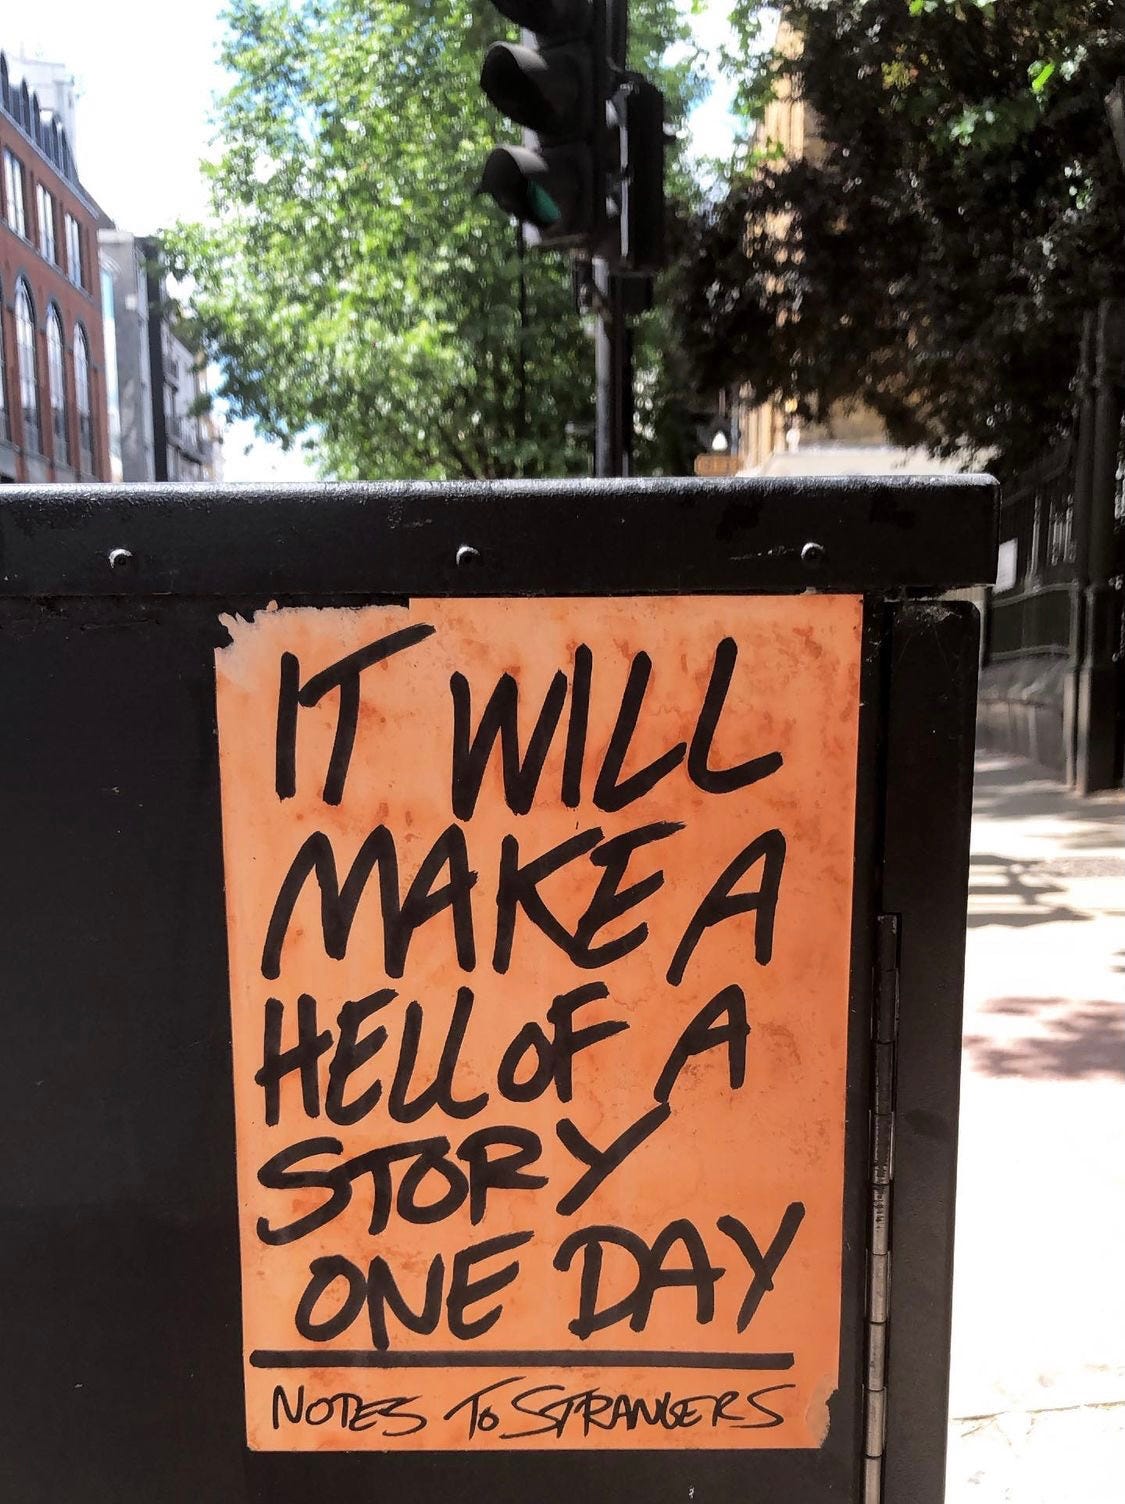 IT WILL
MAKE A
HELL OF A
STORY
ONE DAY
NOTES TO STRANGERS